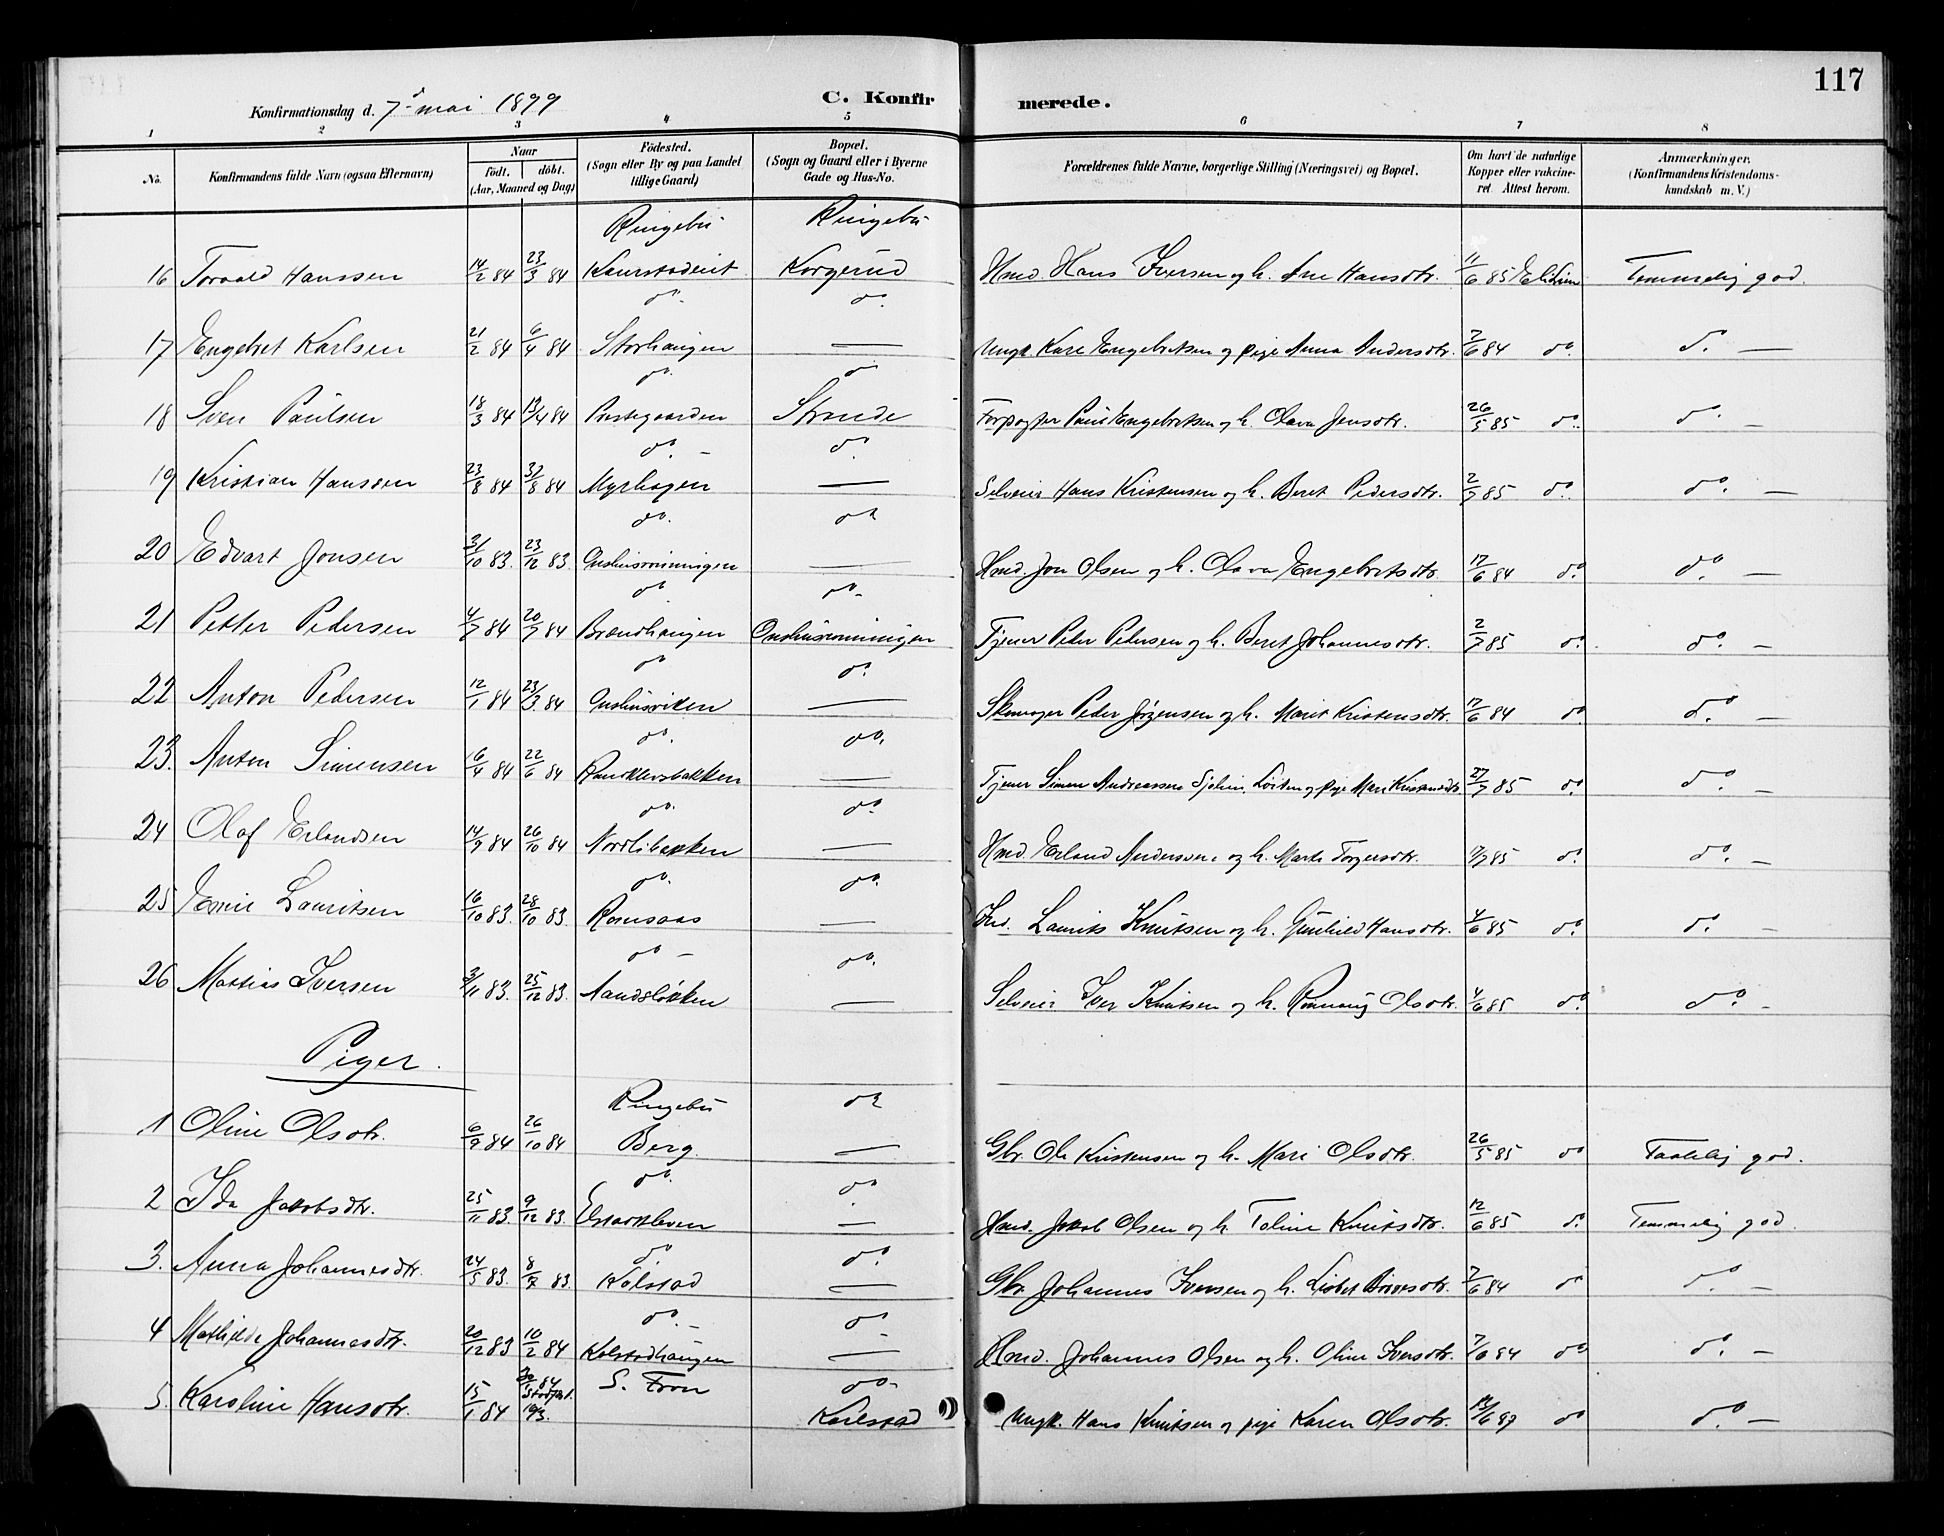 117
Konfirmationsdag d. 7d mai 1899
C. Konfirmerede.
1 2 3 4 5 6 7 8
No. Konfirmandens fulde Navn (ogsaa Efternavn) Naar födt. döbt. (Aar, Maaned og Dag) Födested. (Sogn eller By og paa Landet tillige Gaard) Bopæl. (Sogn og Gaard eller i Byerne Gade og Hus-No. Forældrenes fulde Navne, borgerlige Stilling (Næringsvei) og Bopæl. Om havt de naturlige Kopper eller vakcineret. Attest herom. Anmærkninger. (Konfirmandens Kristendomskundskab m. V.)
Ringebu Ringebu
16 Torvald Hanssen 14/2 84 23/3 84 Korgerud Hmd. Hans Iversen og h. Ane Hansdtr. 11/6 85 Temmelig god.
do. do.
17 Engebret Karlsen 21/2 84 6/4 84 Storhaugen — Ungk. Karl Engebretsen og pige Anna Andersdtr. 7/6 84 do. do. —
do. do
18 Sven Paulsen 18/3 84 13/4 84 Prestegaarden Strande Forpagter Paul Engebretsen og h. Olava Jensdtr. 26/5 85 do. do. —
do. — do.
19 Kristian Hanssen 23/8 84 31/8 84 Myrhagen — Selveier Hans Kristensen og h. Beret Pedersdtr. 2/7 85 do. do. —
do. do
20 Edvart Jonsen 31/10 83. 23/12 83. — Hmd. Jon Olsen og h. Olava Engebretsdtr. 17/6 84 do. do. —
do do.
21 Petter Pedersen 4/7 84 20/7 84 Brændhaugen Tjener Peder Pedersen og h. Beret Johannesdtr. 2/7 85 do. do. —
do do.
22 Anton Pedersen 12/1 84 23/3. 84 — Skomager Peder Jörgensen og h. Marit Kristensdtr. 17/6 84 do do. —
do. do.
23. Anton Simensen 6/4 84 22/6 84 Randklevsbakken — Tjener Simen Andreassen og pige Mari 27/7 85 do. do. —
do. do.
24 Olaf Erlandsen 14/9 84 26/10 84 Nordlibakken — Hmd. Erland Andersen og h. Marte Torgersdtr. do. do. —
do. do.
25 Emil Lauritsen 16/10 83. 28/10 83. Romsaas — Ind. Laurits Knutsen og h. Gunhild Hansdtr. 4/6 85 do. do. —
do — do.
26 Mattias Iversen 3/11 83. 25/12 83. — Selveier Iver Knutsen og h. Rønnaug Olsdtr. 4/6 85 do. do. —
Piger.
Ringebu do
1 Oline Olsdtr. 6/9 84 26/10 84 Berg — Gbr. Ole Kristensen og h. Mari Olsdtr. 26/5 85 do Taalelig god.
do. do.
2 Ida Jakobsdtr. 25/11 83. 9/12 83. — Hmd. Jakob Olsen og h. Toline Knutsdtr. 12/6 85 do. Temmelig god.
do. do.
3. Anna Johannesdtr. 24/5 83. 8/7 83. Kolstad — Gbr. Johannes Iversen og h. Lisbet 7/6 84 do do. —
do. — do.
4 Mathilde Johannesdtr. 20/12 83 10/2 84 Kolstadhaugen — Hmd. Johannes Olsen og h. Oline Iversdtr. 7/6 84 do do. —
S. Fron do. —
5. Karoline Hansdtr. 15/1 84 Karlstad Ungk. Hans Knutsen og pige Karen Olsdtr. do do. —